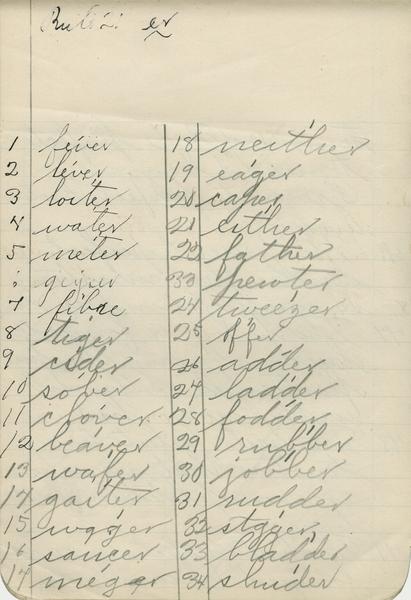 Rule 2: er
1 fever
2 lever
3 loiter
4 water
5 meter
geyser
7 fibre
8 tiger
9 cider
10 sober
11 clover
12 beaver
13 wafer
14 gaiter
15 wager
16 saucer
17 meager
18 neither
19 eager
20 caper
21 either
22 father
23 pewter
24 tweezer
25 offer
26 adder
27 ladder
28 fodder
29 rubber
30 jobber
31 rudder
32 stager
33 bladder
34 shuder